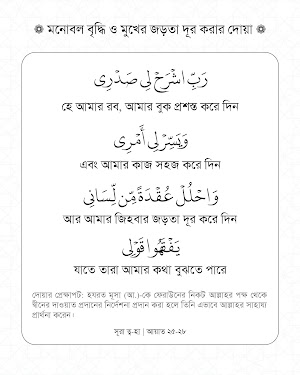 মনোবল বৃদ্ধি ও মুখের জড়তা দূর করার দোয়া
رَبِّ اشْرَحْ لِي صَدْرِي
হে আমার রব, আমার বুক প্রশস্ত করে দিন
وَيَسِّرْ لِي أَمْرِي
এবং আমার কাজ সহজ করে দিন
وَاحْلُلْ عُقْدَةً مِّن لِّسَانِي
আর আমার জিহবার জড়তা দূর করে দিন
يَفْقَهُوا قَوْلِي
যাতে তারা আমার কথা বুঝতে পারে
দোয়ার প্রেক্ষাপট: হযরত মূসা (আ.)-কে ফেরাউনের নিকট আল্লাহর পক্ষ থেকে
দ্বীনের দাওয়াত প্রদানের নির্দেশনা প্রদান করা হলে তিনি এভাবে আল্লাহর সাহায্য
প্রার্থনা করেন।
সূরা ত্ব-হা | আয়াত ২৫-২৮